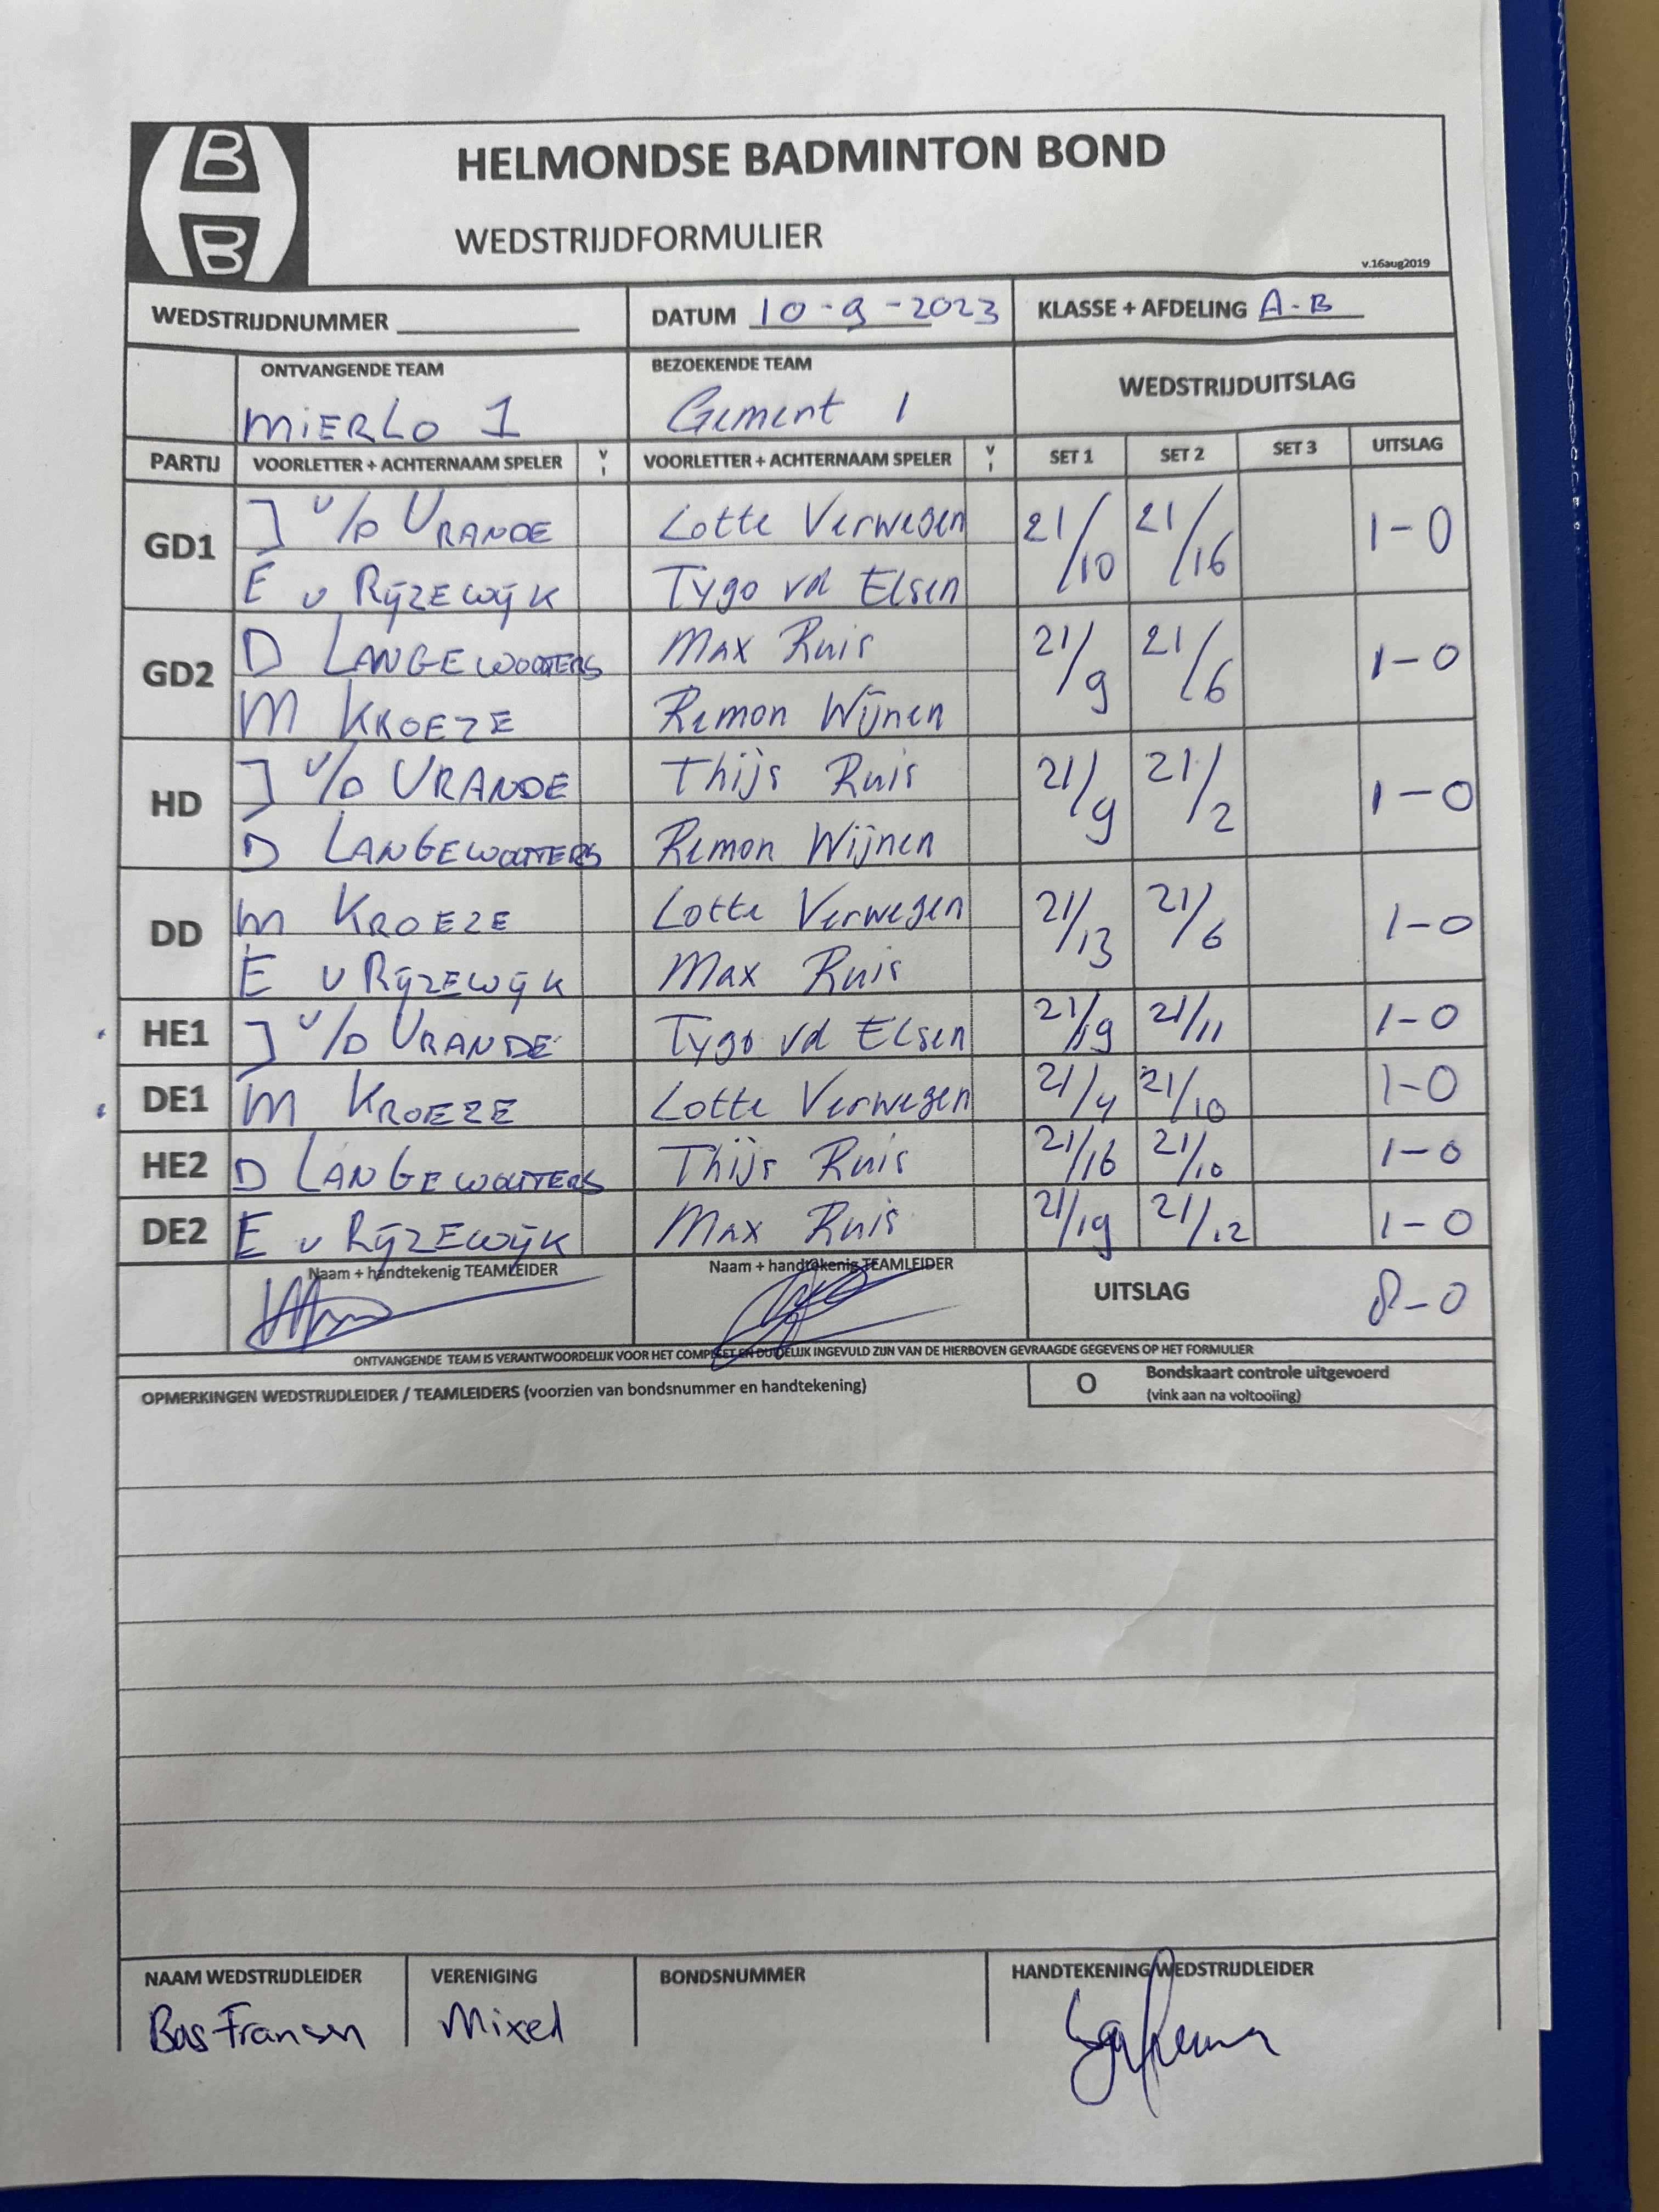 B
B
HELMONDSE BADMINTON BOND
WEDSTRIJDFORMULIER
v.16aug2019
WEDSTRIJDNUMMER DATUM 10-9-2023 KLASSE + AFDELING A-B
ONTVANGENDE TEAM BEZOEKENDE TEAM WEDSTRIJDUITSLAG
MIERLO 1 Gement 1
PARTIJ VOORLETTER + ACHTERNAAM SPELER V I VOORLETTER + ACHTERNAAM SPELER V I SET 1 SET 2 SET 3 UITSLAG
GD1 J v/D VRANDE Lotte Verwegen 21/10 21/16 1-0
E v RijZEWijK Tygo vd Elsen
GD2 D LANGEWOUTERS Max Ruis 21/9 21/6 1-0
M KROEZE Remon Wijnen
HD J v/D VRANDE Thijs Ruis 21/9 21/2 1-0
D LANGEWOUTERS Remon Wijnen
DD M KROEZE Lotte Verwegen 21/13 21/6 1-0
E v RijZEWijK Max Ruis
HE1 J v/D VRANDE Tygo vd Elsen 21/19 21/11 1-0
DE1 M KROEZE Lotte Verwegen 21/4 21/10 1-0
HE2 D LANGEWOUTERS Thijs Ruis 21/16 21/10 1-0
DE2 E v RijZEWijK Max Ruis 21/19 21/12 1-0
Naam + handtekenig TEAMLEIDER Naam + handtekenig TEAMLEIDER UITSLAG 8-0
ONTVANGENDE TEAM IS VERANTWOORDELIJK VOOR HET COMPLEET EN DUIDELIJK INGEVULD ZIJN VAN DE HIERBOVEN GEVRAAGDE GEGEVENS OP HET FORMULIER
OPMERKINGEN WEDSTRIJDLEIDER / TEAMLEIDERS (voorzien van bondsnummer en handtekening) O Bondskaart controle uitgevoerd
(vink aan na voltooiing)
NAAM WEDSTRIJDLEIDER VERENIGING BONDSNUMMER HANDTEKENING WEDSTRIJDLEIDER
Bas Fransen Mixed